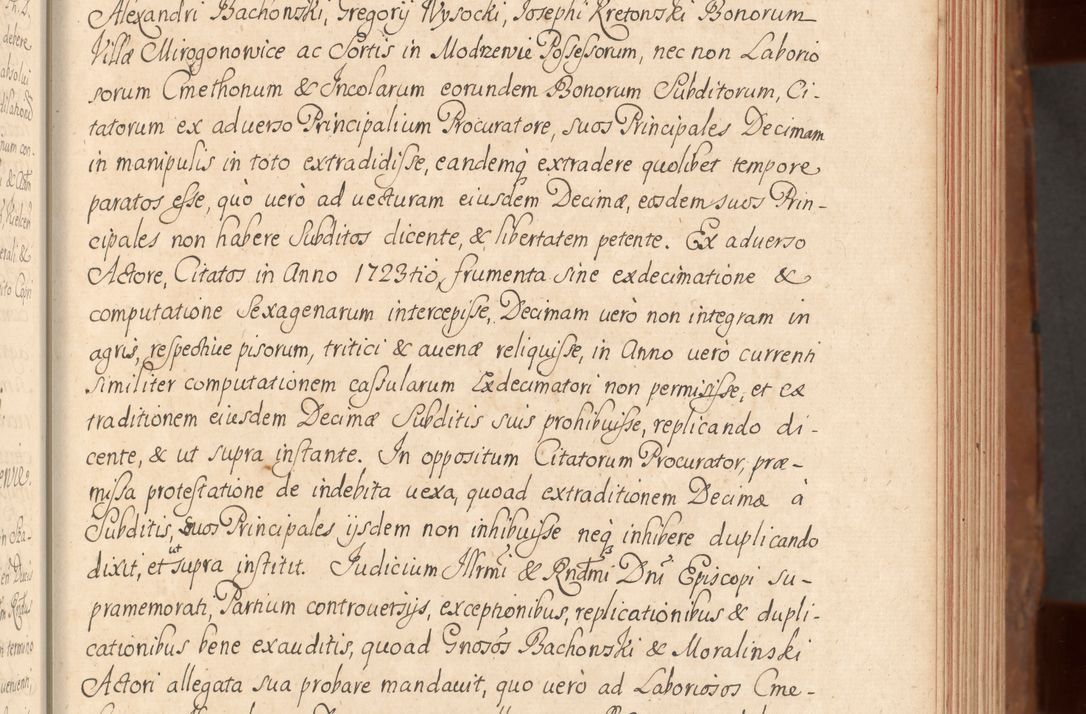 Alexandri Bachonski, Gregorÿ Wysocki, Josephi Kretonski Bonorum
Villæ Mirogonowice ac Sortis in Modrzewie Possessorum, nec non Laborio
sorum Cmethonum & Incolarum eorundem Bonorum Subditorum, Ci-
tatorum ex aduerso Principalium Procuratore, suos Principales Decimam
in manipulis in toto extradidisse, eandemq́ extradere quolibet tempore
paratos esse, quò uerò ad uecturam eiusdem Decimæ, eosdem suos Prin-
cipales non habere Subditos dicente, & libertatem petente. Ex aduerso
Actore, Citatos in Anno 1723tiò, frumenta sine exdecimatione &
computatione Sexagenarum intercepisse, Decimam uerò non integram in
agris, respectiue pisorum, tritici & auenæ reliquisse, in Anno uerò currenti
similiter computationem cassularum Exdecimatori non permisisse, et ea
traditionem eiusdem Decimæ Subditis suis prohibuisse, replicando di-
cente, & ut supra instante. In oppositum Citatorum Procurator, præ-
missa protestatione de indebita uexa, quoad extraditionem Decimæ à
Subditis, suos Principales ijsdem non inhibuisse neq́ inhibere duplicando
dixit, et ut supra institit. Judicium Illrmi & Rndmi Dni Episcopi su-
pramemorati, Partium controuersijs, exceptionibus, replicationibus & dupli-
cationibus bene exauditis, quoad Gnosos Bachonski & Moralinski
Actori allegata sua probare mandauit, quo uerò ad Laboriosos Cme-